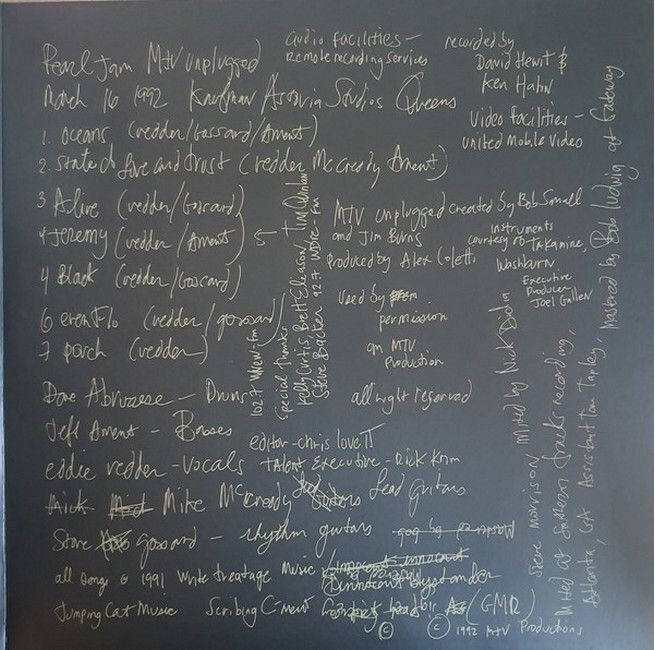 Pearl Jam MTV unplugged
March 16 1992 Kaufman Astoria Studios Queens
1. Oceans (vedder/Gossard/Ament)
2. State of love and trust (vedder McCready Ament)
3 Alive (vedder/Gossard)
4 Jeremy (vedder/Ament) ←
4 Black (vedder/Gossard)
6 even flo (vedder/gossard)
7 porch (vedder)
Dave Abruzzese — Drums
Jeff Ament — Basses
eddie vedder - vocals
Mike McCready Lead guitars
Steve gossard — rhythm guitars
all songs © 1991 Write treatage Music
Innocent bystander
Jumping Cat Music Scribing C-ment
(GMR)
© © 1992 MTV Productions
audio facilities —
remote recording services
recorded by
David Hewit &
Ken Hahn
Video facilities —
united mobile video
MTV unplugged created by Bob Small
and Jim Burns
Produced by Alex Coletti
used by
permission
an MTV
Production
all right reserved
instruments
courtesy of Takamine,
Washburn
Executive
Producer
Joel Gallen
editor - chris love II
talent Executive - Rick Krim
102.7 WNEW-fm
special thanks
Kelly Curtis, Brett Eliason, Tim
Steve Backer 92.7 WDRE-Fm
Mixed by Nick Didia
Mixed at Southern tracks recording,
Atlanta, GA Assistant Tom Tapley, Mastered by Bob Ludwig at Gateway
Steve morrison